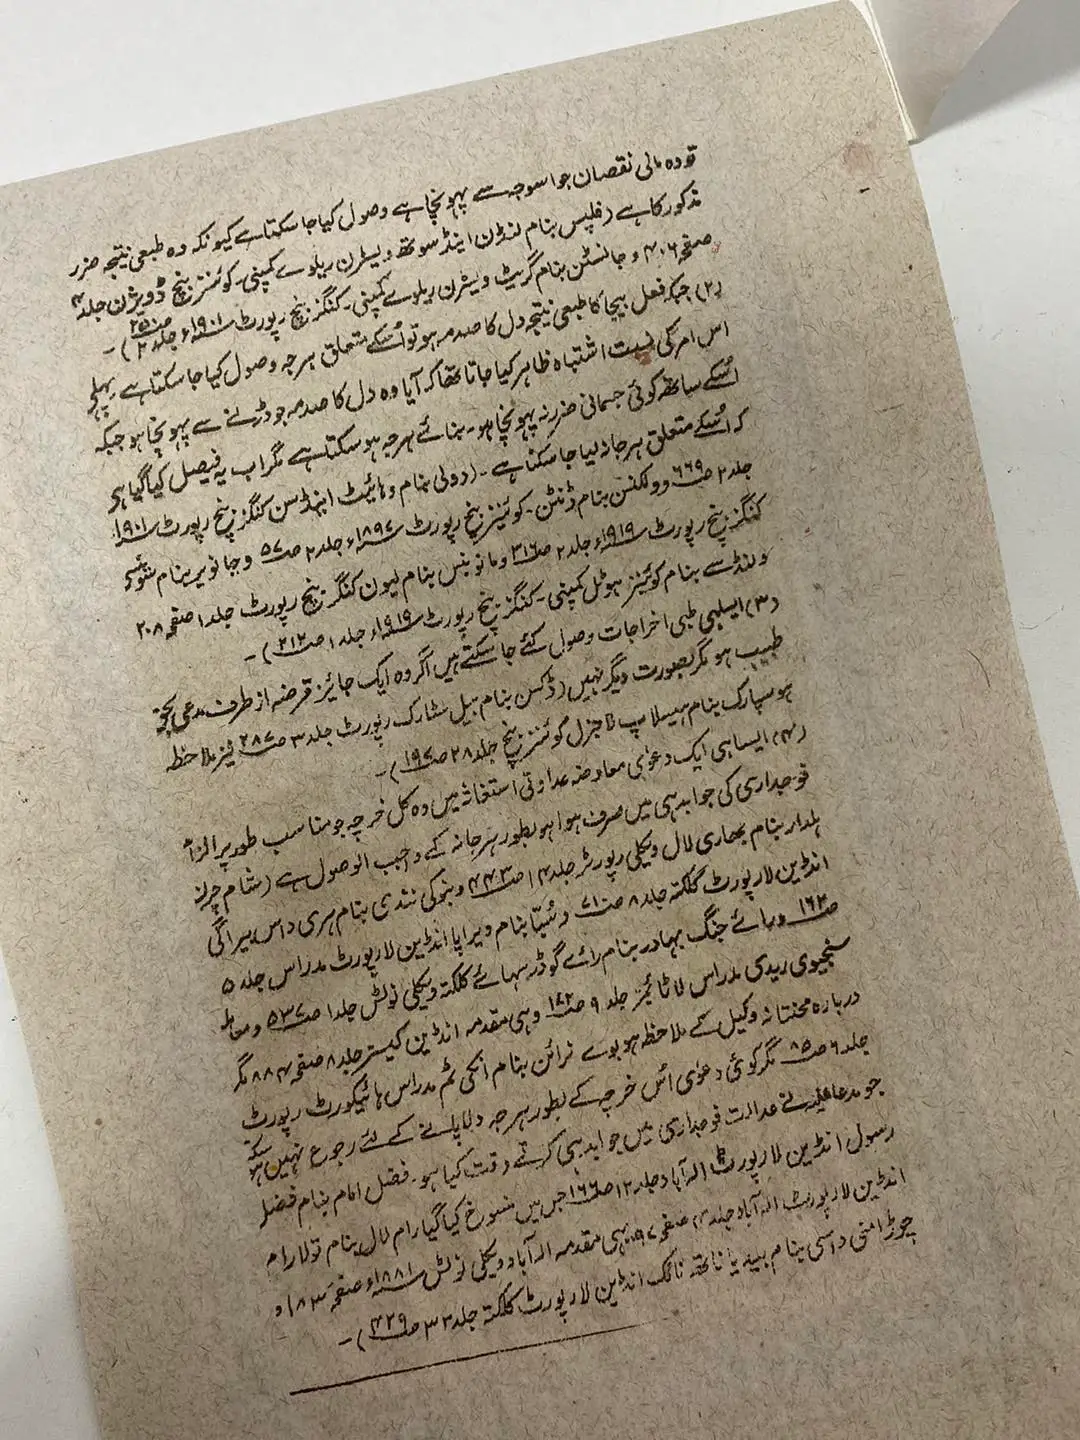 تو وہ مالی نقصان جو اسوجہ سے پہونچا ہے وصول کیا جا سکتا ہے کیونکہ وہ طبعی نتیجہ ضرر
مذکور کا ہے (فلپس بنام لنڈن اینڈ سوتھ ویسٹرن ریلوے کمپنی۔ کوئنز بنچ ڈویژن جلد ۴
صفحہ ۴۰۶ و جانسٹن بنام گریٹ ویسٹرن ریلوے کمپنی۔ کنگز بنچ رپورٹ سنہ ۱۹۰۱ء جلد ۲ صـ ۲۵۰)۔
(۲) جبکہ فعل بیجا کا طبعی نتیجہ دل کا صدمہ ہو تو اُسکے متعلق ہرجہ وصول کیا جا سکتا ہے پہلے
اس امر کی نسبت اشتباہ ظاہر کیا جاتا تھا کہ آیا وہ دل کا صدمہ جو ڈرنے سے پہونچا ہو جبکہ
اُسکے ساتھ کوئی جسمانی ضرر نہ پہونچا ہو۔ بنائے ہرجہ ہو سکتا ہے مگر اب یہ فیصل کیا گیا ہے
کہ اُسکے متعلق ہرجانہ لیا جا سکتا ہے۔ (دولی بنام وہائیٹ اینڈ سن کنگز بنچ رپورٹ سنہ ۱۹۰۱ء
جلد ۲ صـ ۶۶۹ و ولکنسن بنام ڈنٹن۔ کوئینز بنچ رپورٹ سنہ ۱۸۹۷ء جلد ۲ صـ ۵۷ و جانویر بنام
کنگز بنچ رپورٹ سنہ ۱۹۱۹ء جلد ۲ صـ ۳۱۶ و بنام لیون کنگز بنچ رپورٹ جلد ۱ صفحہ ۲۰۸
ولنڈسے بنام کوئینز ہوٹل کمپنی۔ کنگز بنچ رپورٹ سنہ ۱۹۱۹ء جلد ۱ صـ ۲۱۲)۔
(۳) ایسلیی طبی اخراجات وصول کئے جا سکتے ہیں اگر وہ ایک جائیز قرضہ از طرف مدعی بحق
طبیب ہو مگر بصورت دیگر نہیں (ڈکسن بنام بیل سٹارک رپورٹ جلد ۳ صـ ۲۸۷ نیز ملاحظہ
ہو سپارک بنام ہیسلاپ لا جرنل کوئنز بنچ جلد ۲۸ صـ ۱۹۷)۔
(۴) ایسا ہی ایک دعوی معاوضہ عداوتی استغاثہ میں وہ کل خرچہ جو مناسب طور پر الزام
فوجداری کی جوابدہی میں صرف ہوا ہو بطور ہرجانہ کے وجب الوصول ہے (شام چرن
بنام بھاری لال ویکلی رپورٹر جلد ۱۴ صـ ۴۴۳ و بنوکی نندی بنام ہری داس بیراگی
انڈین لا رپورٹ کلکتہ جلد ۸ صـ ۷۱ و بنام ویراپا انڈین لا رپورٹ مدراس جلد ۵
صـ ۱۶۲ ورائے جنگ بہادر بنام رائے گوڈر سہائے کلکتہ ویکلی نوٹس جلد ۱ صـ ۵۳۷ و
سنجیوی ریدی مدراس لا ٹائیمز جلد ۹ صـ ۱۸۲ وہی مقدمہ انڈین کیسز جلد ۸ صفحہ ۸۸۴ مگر
دربارہ محنتانہ وکیل کے ملاحظہ ہو بوے نرائن بنام انکی ٹم مدراس ہائیکورٹ رپورٹ
جلد ۶ صـ ۸۵ مگر کوئی دعوی اُس خرچہ کے بطور ہرجہ دلاپانے کے لئے رجوع نہیں ہو سکتا
جو مدعا علیہ نے عدالت فوجداری میں جوابدہی کرتے وقت کیا ہو۔ فضل امام بنام فضل
رسول انڈین لا رپورٹ الہ آباد جلد ۱۲ صـ ۱۶۶ جس میں منسوخ کیا گیا رام لال بنام تولا رام
انڈین لا رپورٹ الہ آباد جلد ۴ صفحہ ۹۷ یہی مقدمہ الہ آباد ویکلی نوٹس سنہ ۱۸۸۱ء صفحہ ۱۸۳ و
داسی بنام بیدیا ناتھ انڈین لا رپورٹ کلکتہ جلد ۳۳ صـ ۴۲۹)۔